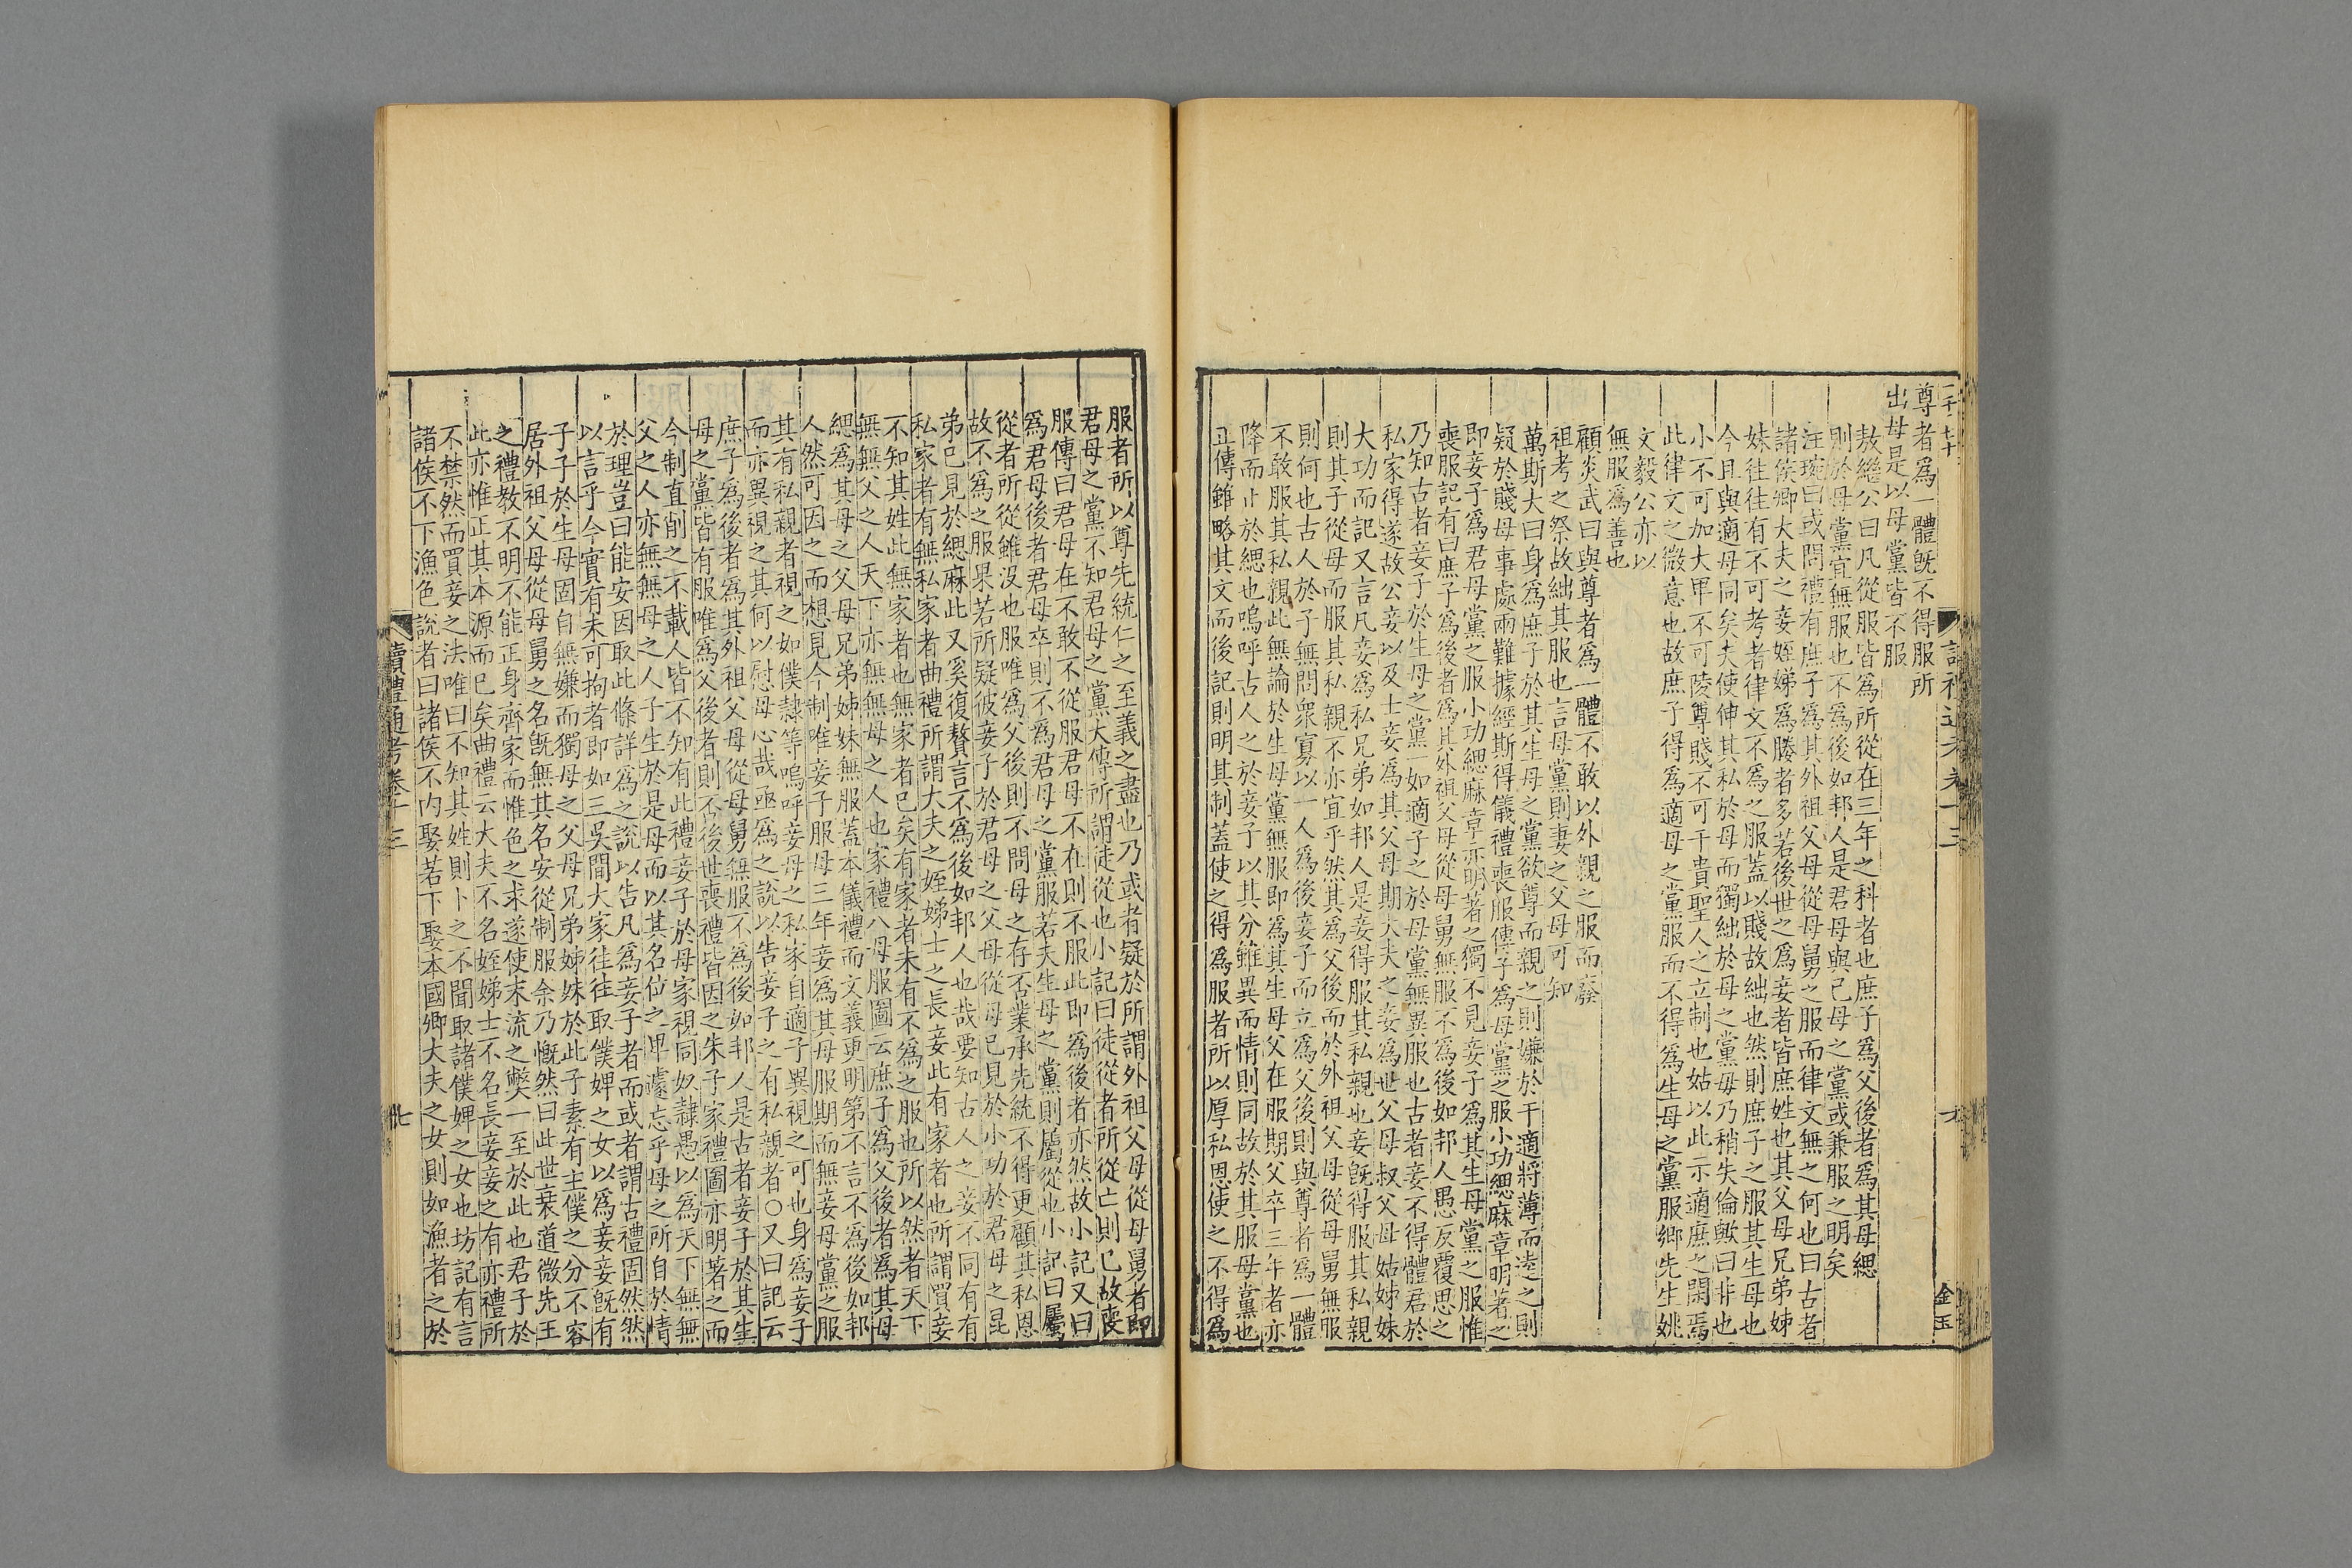 尊者為一體旣不得服所
出母是以母黨皆不服
敖繼公曰凡從服皆為所從在三年之科者也庶子為父後者為其母緦
則於母黨宜無服也不為後如邦人是君母與已母之黨或兼服之明矣
汪琬曰或問禮有庶子為其外祖父母從母舅之服而律文無之何也曰古者
諸侯卿大夫之妾姪娣為媵者多若後世之為妾者皆庶姓也其父母兄弟姊
妹往往有不可考者律文不為之服蓋以賤故絀也然則庶子之服其生母也
今且與適母同矣夫使伸其私於母而獨絀於母之黨毋乃稍失倫歟曰非也
小不可加大卑不可陵尊賤不可干貴聖人之立制也姑以此示適庶之閑焉
此律文之微意也故庶子得為適母之黨服而不得為生母之黨服鄉先生姚
文毅公亦以
無服為善也
顧炎武曰與尊者為一體不敢以外親之服而廢
祖考之祭故絀其服也言母黨則妻之父母可知
萬斯大曰身為庶子於其生母之黨欲尊而親之則嫌於干適將薄而遠之則
疑於賤母事處兩難據經斯得儀禮喪服傳子為母黨之服小功緦麻章明著之
即妾子為君母黨之服小功緦麻章亦明著之獨不見妾子為其生母黨之服惟
喪服記有曰庶子為後者為其外祖父母從母舅無服不為後如邦人愚反覆思之
乃知古者妾子於生母之黨一如適子之於母黨無異服也古者妾不得體君於
私家得遂故公妾以及士妾為其父母期大夫之妾為世父母叔父母姑姊妹
大功而記又言凡妾為私兄弟如邦人是妾得服其私親也妾旣得服其私親
則其子從母而服其私親不亦宜乎然其為父後而於外祖父母從母舅無服
則何也古人於子無問衆寡以一人為後妾子而立為父後則與尊者為一體
不敢服其私親此無論於生母黨無服即為其生母父在服期父卒三年者亦
降而止於緦也嗚呼古人之於妾子以其分雖異而情則同故於其服母黨也
正傳雖略其文而後記則明其制蓋使之得為服者所以厚私恩使之不得為
服者所以尊先統仁之至義之盡也乃或者疑於所謂外祖父母從母舅者即
君母之黨不知君母之黨大傳所謂徒從也小記曰徒從者所從亡則已故喪
服傳曰君母在不敢不從服君母不在則不服此即為後者亦然故小記又曰
為君母後者君母卒則不為君母之黨服若夫生母之黨則屬從也小記曰屬
從者所從雖沒也服唯為父後則不問母之存否業承先統不得更顧其私恩
故不為之服果若所疑彼妾子於君母之父母從母已見於小功於君母之昆
弟已見於緦麻此又奚復贅言不為後如邦人也哉要知古人之妾不同有有
私家者有無私家者曲禮所謂大夫之姪娣士之長妾此有家者也所謂買妾
不知其姓此無家者也無家者已矣有家者未有不為之服也所以然者天下
無無父之人天下亦無無母之人也家禮八母服圖云庶子為父後者為其母
緦為其母之父母兄弟姊妹無服蓋本儀禮而文義更明第不言不為後如邦
人然可因之而想見今制唯妾子服母三年妾為其母服期而無妾母黨之服
其有私親者視之如僕隸等嗚呼妾母之私家自適子異視之可也身為妾子
而亦異視之其何以慰母心哉亟為之說以告妾子之有私親者○又曰記云
庶子為後者為其外祖父母從母舅無服不為後如邦人是古者妾子於其生
母之黨皆有服唯為父後者則否後世喪禮皆因之朱子家禮圖亦明著之而
今制直削之不載人皆不知有此禮妾子於母家視同奴隸愚以為天下無無
父之人亦無無母之人子生於是母而以其名位之卑遽忘乎母之所自於情
於理豈曰能安因取此條詳為之說以告凡為妾子者而或者謂古禮固然然
以言乎今實有未可拘者即如三吳間大家往往取僕婢之女以為妾妾旣有
子子於生母固自無嫌而獨母之父母兄弟姊妹於此子素有主僕之分不容
居外祖父母從母舅之名旣無其名安從制服余乃慨然曰此世衰道微先王
之禮教不明不能正身齊家而惟色之求遂使末流之獘一至於此也君子於
此亦惟正其本源而已矣曲禮云大夫不名姪娣士不名長妾妾之有亦禮所
不禁然而買妾之法唯曰不知其姓則卜之不聞取諸僕婢之女也坊記有言
諸侯不下漁色說者曰諸侯不内娶若下娶本國卿大夫之女則如漁者之於
讀禮通考卷十三